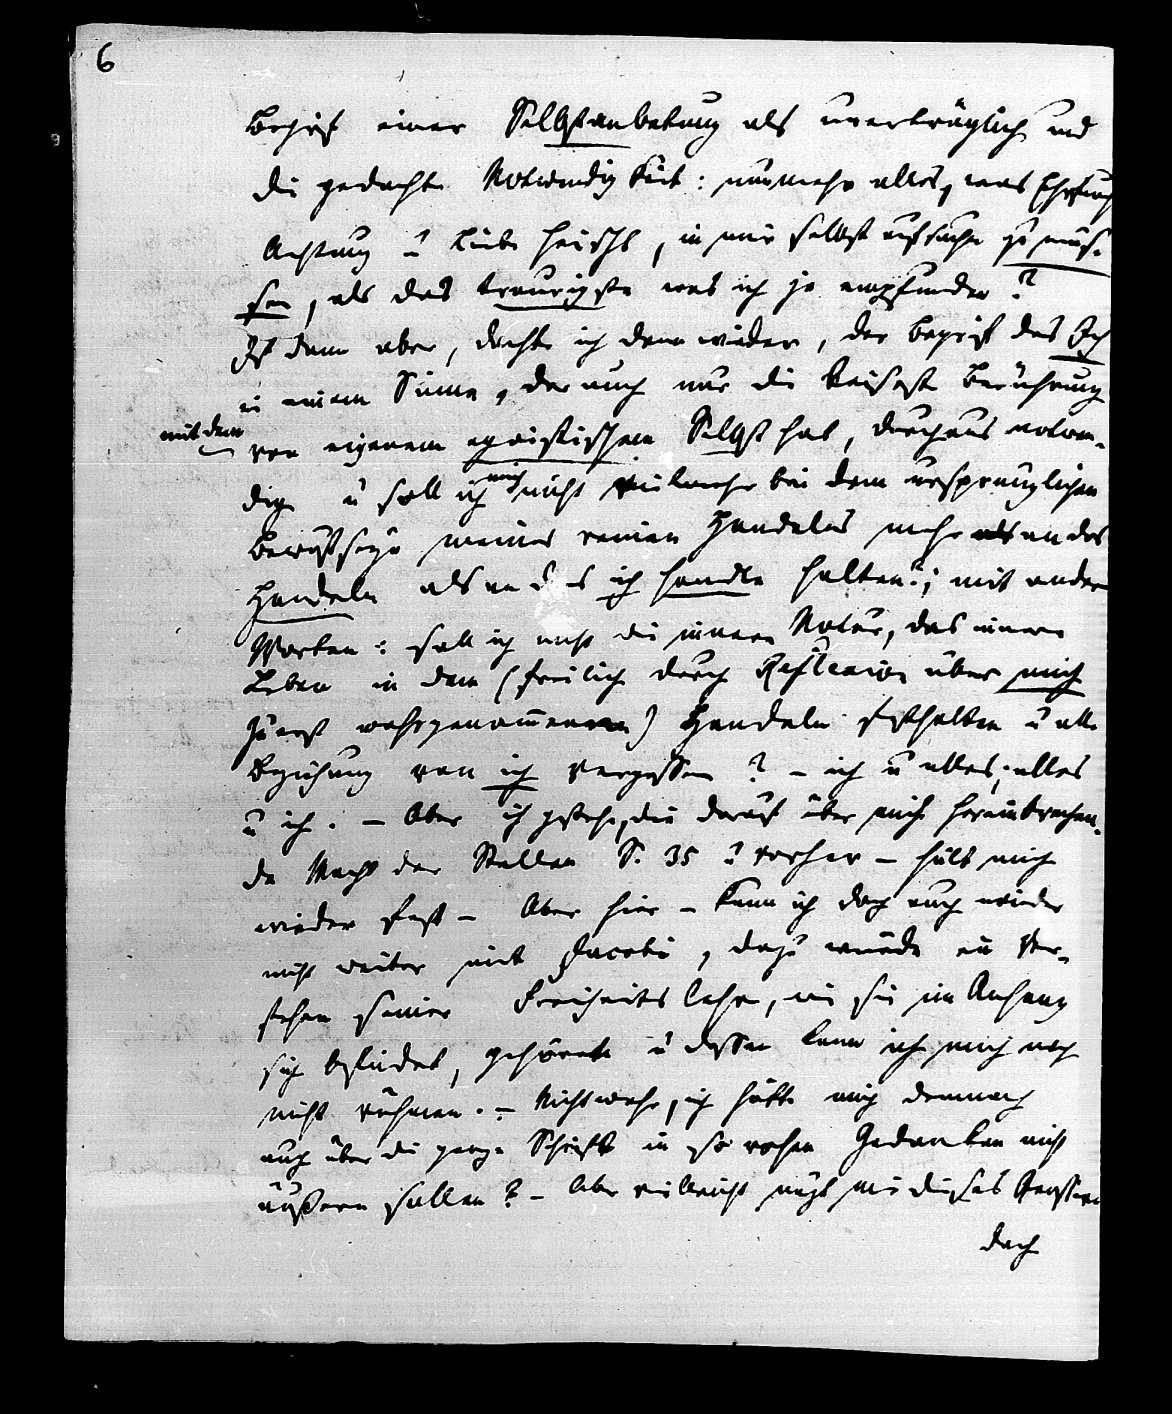 6
Begrif einer Selbstanbetung als unerträglich und
die gedachte Notwendigkeit: nunmehr alles, was Ehrfurcht
Achtung u Liebe heischt, in mir selbst aufsuchen zu müs-
sen, als das traurigste was ich je empfunden?
Ist denn aber, dachte ich dann wieder, der Begrif des Ich
in einem Sinne, der auch nur die leiseste Berührung
mit dem
von eigenem egoistischem Selbst hat, durchaus notwen-
dig u soll ich mich nicht vielmehr bei dem ursprünglichen
Bewußtseyn meines reinen Handelns mehr als an das
Handeln als an das ich handle halten?; mit andern
Worten: soll ich nicht die innere Natur, das innere
Leben in dem (freilich durch Reflexion über mich
zuerst wahrgenommenen) Handeln festhalten u alle
Beziehung von ich vergessen? – ich u alles; alles
u ich. – Aber ich gestehe, die darauf über mich hereinbrechen-
de Macht der Stellen S. 35 u vorher – hält mich
wieder fest – Aber hier – kann ich doch auch wieder
nicht weiter mit Jacobi, dazu würde ein Ver-
stehen seiner Freiheitslehre, wie sie im Anhang
sich befindet, gehören u dessen kann ich mich noch
nicht rühmen. – Nicht wahr, ich hätte mich demnach
auch über die ganze Schrift in so rohen Gedanken nicht
äußern sollen? – Aber vielleicht nüzt mir dieses
doch